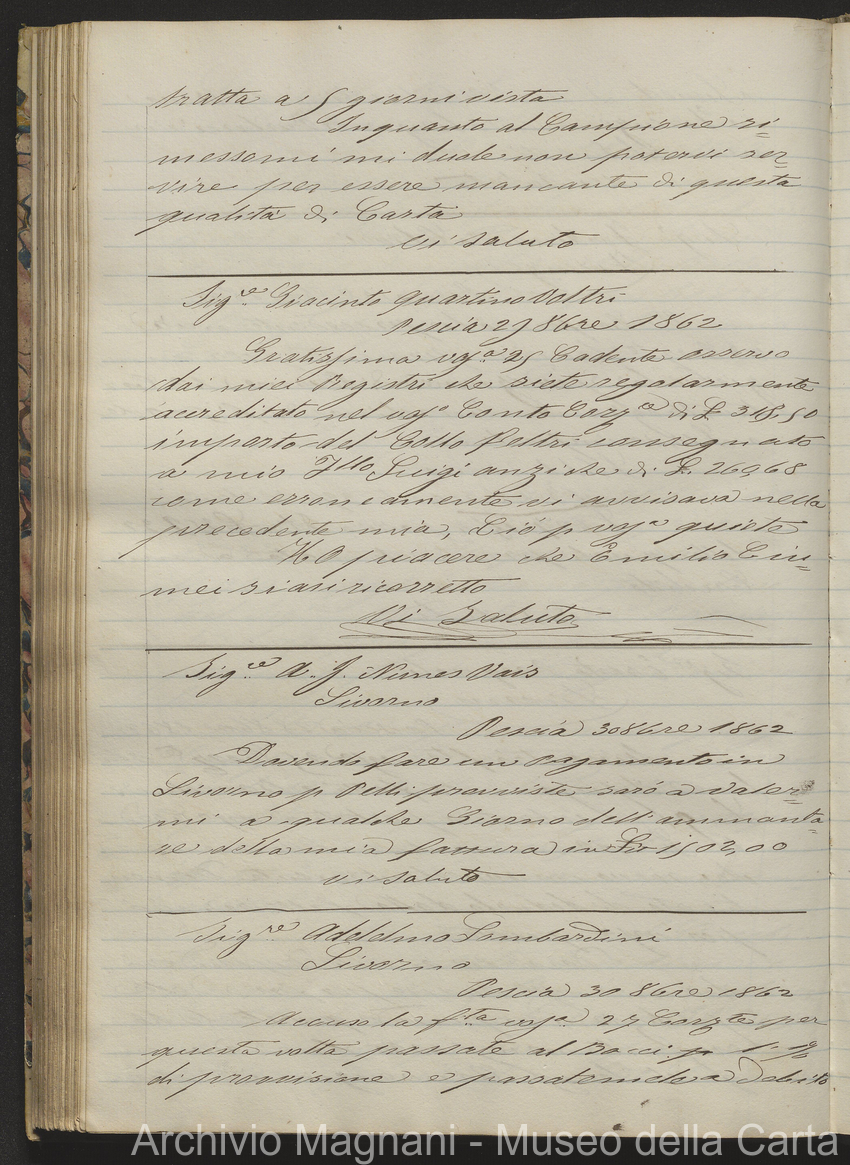 tratta a 5 giorni vista
Inquanto al Campione ri=
messomi mi duole non potervi ser=
vire per essere mancante di questa
qualità di Carta
Vi saluto
Sig.re Giacinto Quartino Voltri
Pescia 29 8bre 1862
Gratissima vos.a 25 Cadente osservo
dai miei Registri che siete regolarmente
accreditato nel vos.o Conto Corr.te di £ 318,50
importo del Collo Feltri consegnato
a mio F.llo Luigi anziche di £. 260,68
come erroneamente vi avvisava nella
precedente mia, Ciò p vos.a quiete
Ho piacere che Emilio Ciu=
mei siasi ricorretto
Vi Saluto
Sig.re A. J. Nunes Vais
Livorno
Pescia 30 8bre 1862
Dovendo fare un Pagamento in
Livorno p. Pelli provviste sarò a Valer=
mi a qualche Giorno dell'ammonta=
re della mia fattura in £ 1502,00
vi saluto
Sig.re Adelelmo Lombardini
Livorno
Pescia 30 8bre 1862
Accuso la f.ta vos.a 27 Corr.te per
questa volta passate al Bocci p. 1. %
di provvisione e passatemelo a Debito
Archivio Magnani - Museo della Carta